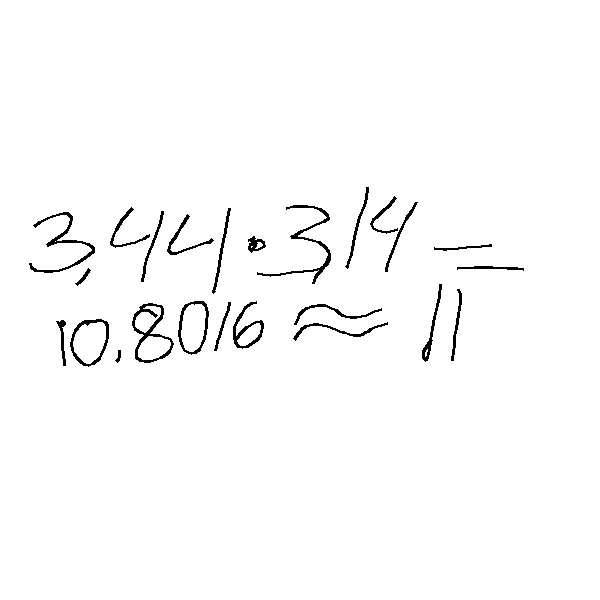 3,44·3,14=
10.8016≈11